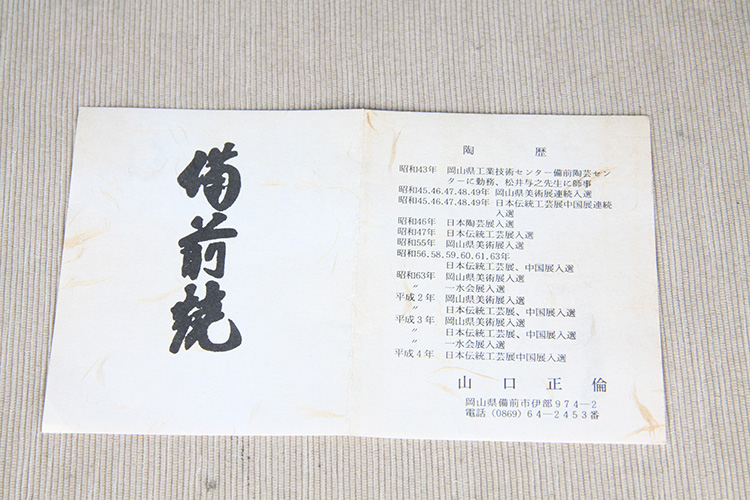 備前焼
陶歴
昭和43年 岡山県工業技術センター備前陶芸セン
ターに勤務、松井与之先生に師事
昭和45.46.47.48.49年 岡山県美術展連続入選
昭和45.46.47.48.49年 日本伝統工芸展中国展連続
入選
昭和46年 日本陶芸展入選
昭和47年 日本伝統工芸展入選
昭和55年 岡山県美術展入選
昭和56.58.59.60.61.63年
日本伝統工芸展、中国展入選
昭和63年 岡山県美術展入選
〃 一水会展入選
平成2年 岡山県美術展入選
〃 日本伝統工芸展、中国展入選
平成3年 岡山県美術展入選
〃 日本伝統工芸展、中国展入選
〃 一水会展入選
平成4年 日本伝統工芸展中国展入選
山口正倫
岡山県備前市伊部974―2
電話(0869)64―2453番